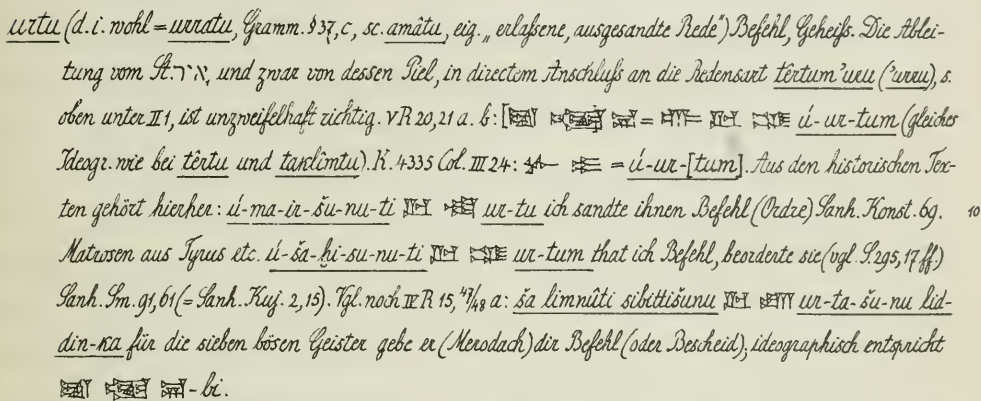 urtu (d. i. wohl = urratu, Gramm. §37, c, sc. amâtu, eig. „erlaßene, ausgesandte Rede“) Befehl, Geheiß. Die Ablei-
tung vom St. א״ר, und zwar von dessen Piel, in directem Anschluß an die Redensart têrtum 'uru ('urru), s.
oben unter II 1, ist unzweifelhaft richtig. VR 20, 21 a. b: [ = ú-ur-tum (gleiches
Ideogr. wie bei têrtu und taklîmtu). K. 4335 Col. III 24: = ú-ur-[tum]. Aus den historischen Tex-
ten gehört hierher: ú-ma-ir-šu-nu-ti ur-tu ich sandte ihnen Befehl (Ordre) Sanh. Konst. 69. 10
Matrosen aus Tyrus etc. ú-ša-ḫi-su-nu-ti ur-tum that ich Befehl, beorderte sie (vgl. S. 295, 17 ff.)
Sanh. Sm. 91, 61 (= Sanh. Kuj. 2, 15). Vgl. noch IV R 15, 47/48 a: ša limnûti sibittišunu ur-ta-šu-nu lid-
din-ka für die sieben bösen Geister gebe er (Merodach) dir Befehl (oder Bescheid), ideographisch entspricht
-bi.